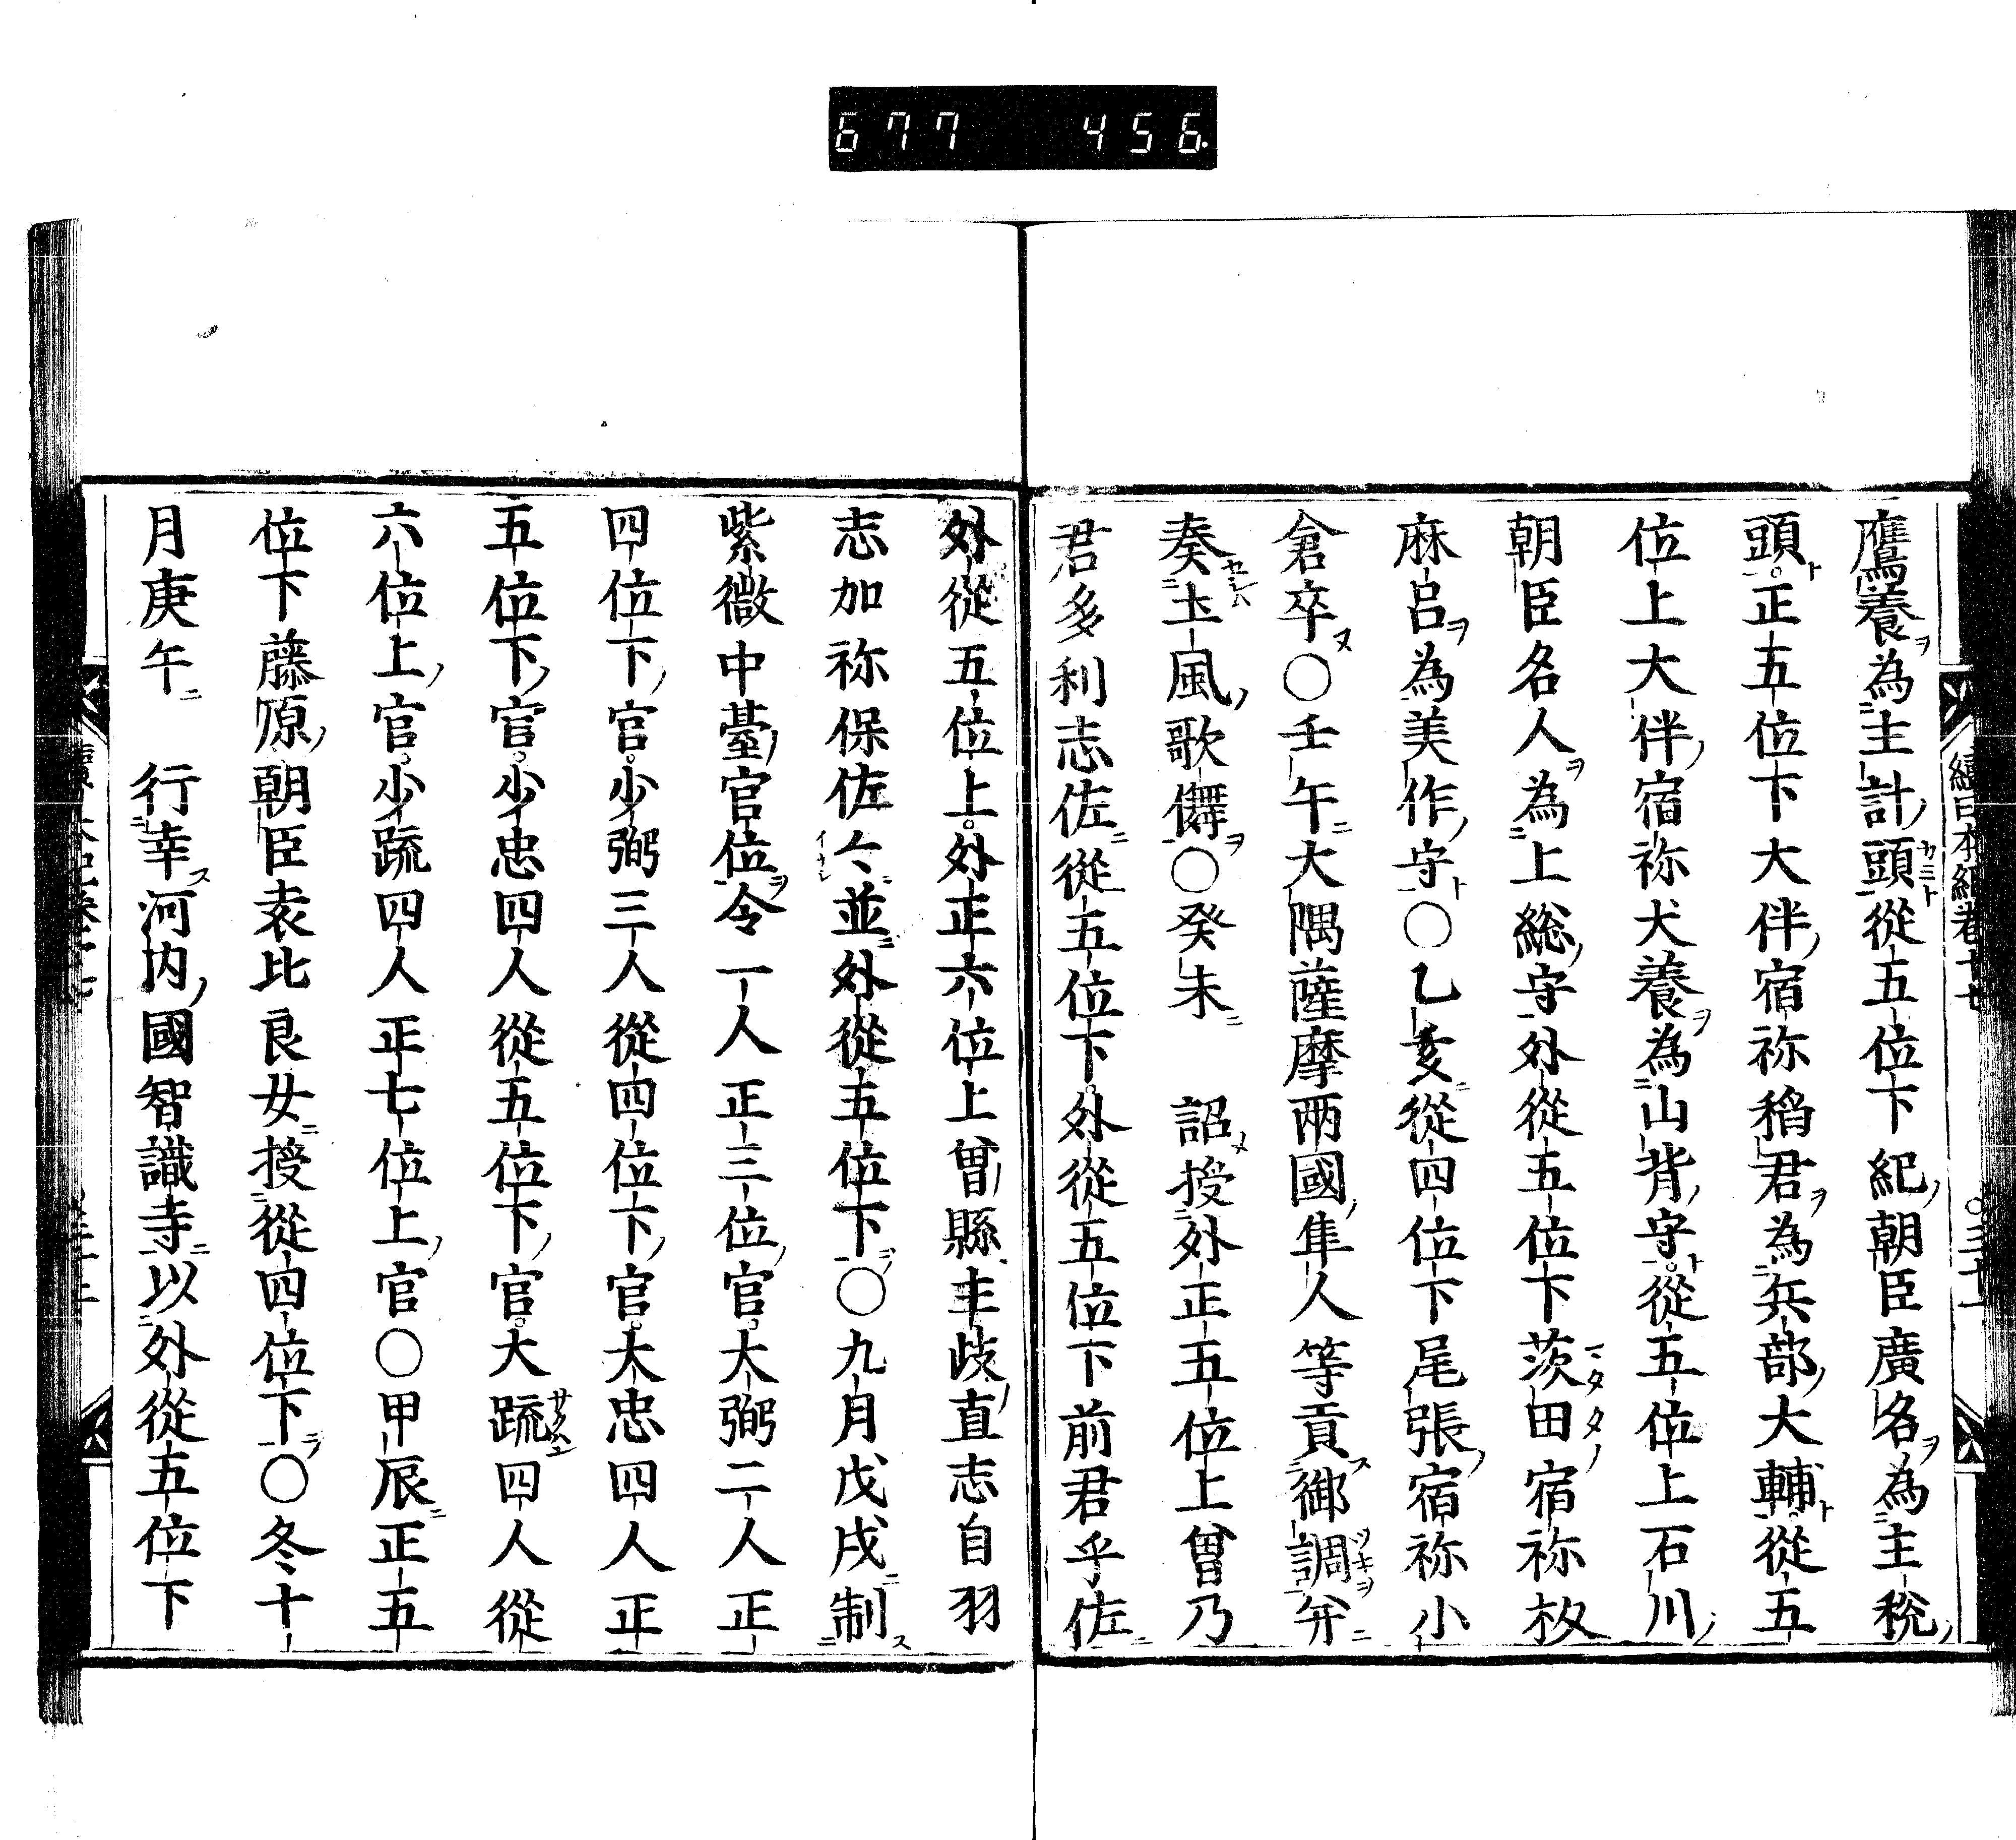 677 456.
續日本紀卷十七
鷹養ヲ為主計頭カミト從五位下紀朝臣廣名ヲ為主稅
頭ト正五位下大伴宿祢稻君ヲ為兵部大輔ト從五
位上大伴宿祢犬養ヲ為山背守ト從五位上石川
朝臣名人ヲ為上総守外從五位下茨田宿祢枚
麻呂ヲ為美作守ト〇乙亥從四位下尾張宿祢小
倉卒ヌ〇壬午ニ大隅薩摩兩國隼人等貢ス御調ツキヲ并ニ
奏土風歌儛ヲ〇癸未ニ 詔ヌ授外正五位上曽乃
君多利志佐ニ從五位下外從五位下前君乎佐ニ
外從五位上外正六位上曽縣主岐直志自羽
志加祢保佐並外從五位下ヲ〇九月戊戌ニ制ス
紫微中臺官位ヲ令一人正三位官大弼二人正
四位下官少弼三人從四位下官大忠四人正
五位下官少忠四人從五位下官大疏四人從
六位上官少疏四人正七位上官〇甲辰ニ正五
位下藤原朝臣袁比良女ニ授從四位下ヲ〇冬十
月庚午ニ 行幸ス河内國智識寺ニ以外從五位下